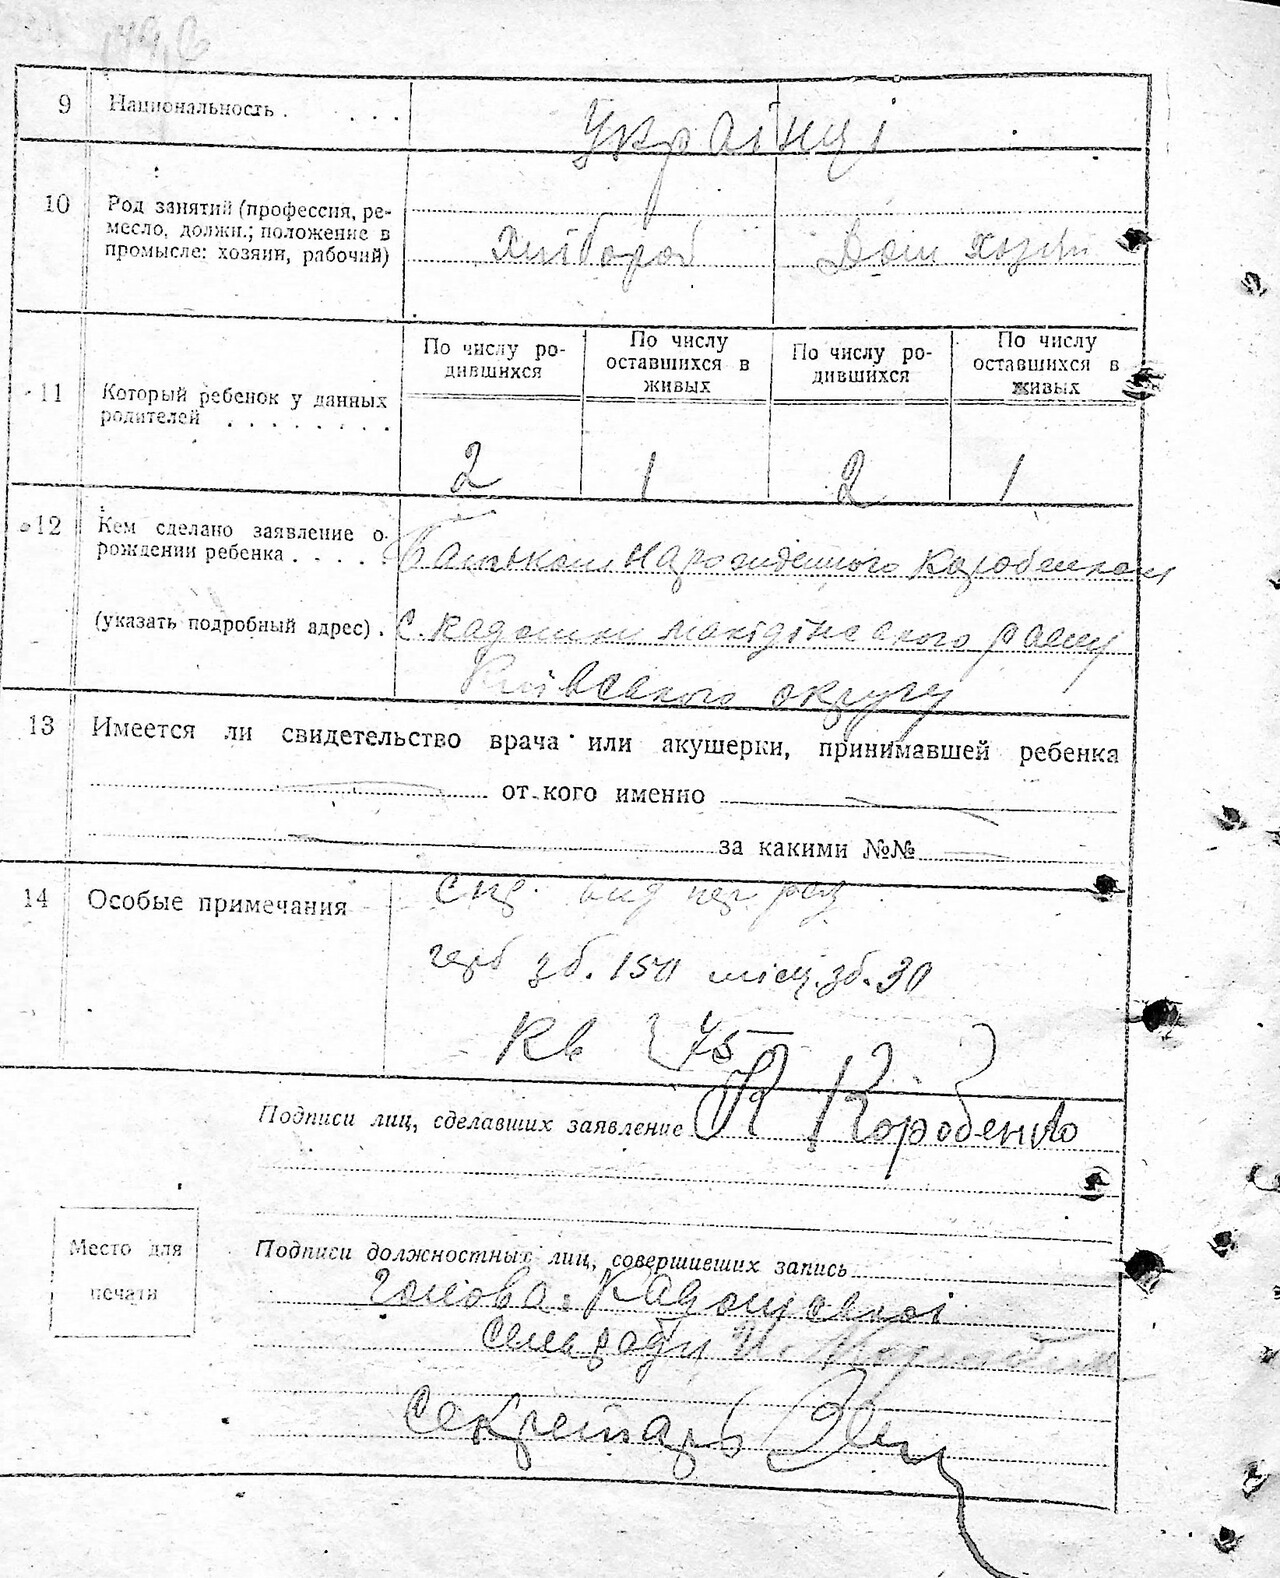 9 Национальность . . . .
Українці
10 Род занятий (профессия, ре-
месло, должн.; положение в
промысле: хозяин, рабочий)
Хлібороб Дом хозяй
11 Который ребенок у данных
родителей . . . . . . . .
По числу ро-
дившихся
По числу
оставшихся в
живых
По числу ро-
дившихся
По числу
оставшихся в
живых
2 1 2 1
12 Кем сделано заявление о
рождении ребенка . . . . .
Батьком народженного Коробенком
(указать подробный адрес) .
с. Кадомки району
Київського округу
13 Имеется ли свидетельство врача или акушерки, принимавшей ребенка
от кого именно
за какими №№
14 Особые примечания
герб зб. 150 місц. зб. 30
Кв 75
Подписи лиц, сделавших заявление К Коробенко
Место для
печати
Подписи должностных лиц, совершивших запись
Голова
сельради
секретарь